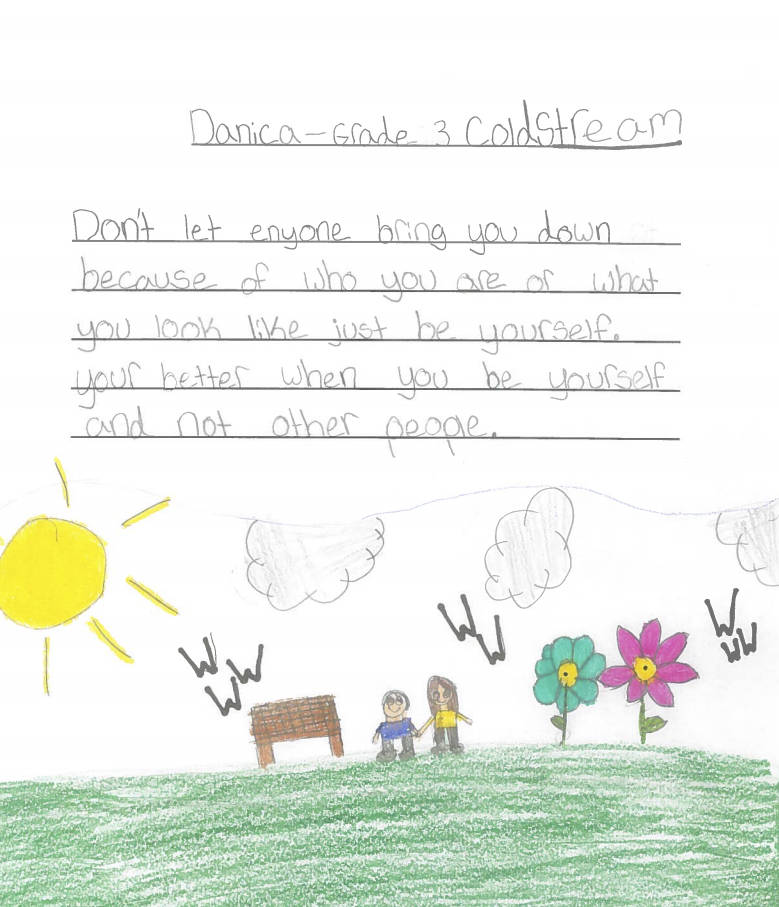 Danica - Grade 3 Coldstream
Don't let enyone bring you down
because of who you are or what
you look like just be yourself.
your better when you be yourself
and not other peope.